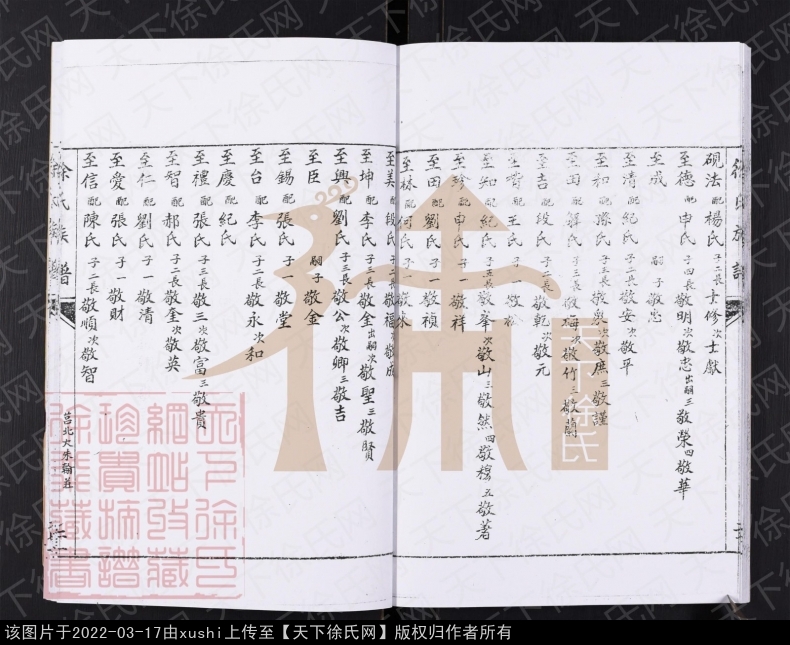 硯法配楊氏子二長士修次士獻
至德配申氏子四長敬明次敬忠出嗣三敬榮四敬華
至成嗣子敬忠
至清配紀氏子二長敬安次敬平
至和配孫氏子三長敬 次敬庶三敬謹
至田配解氏子三長敬海次敬竹三敬蘭
至吉配段氏子二長敬乾次敬元
至 配王氏子一敬
至知配紀氏子五長敬峯次敬山三敬然四敬穆五敬著
至珍配申氏子一敬祥
至田配劉氏子一敬禎
至林配何氏子一敬水
至美配段氏子二長敬福次敬
至坤配李氏子三長敬金出嗣次敬聖三敬賢
至興配劉氏子三長敬公次敬卿三敬吉
至臣嗣子敬金
至錫配張氏子一敬堂
至台配李氏子二長敬永次和
至慶配紀氏
至禮配張氏子三長敬三次敬富三敬貴
至智配郝氏子二長敬奎次敬英
至仁配劉氏子一敬清
至愛配張氏子一敬財
至信配陳氏子二長敬順次敬智
徐氏族譜
莒北大朱翰莊
天下徐氏
天下徐氏網站收藏珍貴族譜徐華藏書
天下徐氏网
该图片于2022-03-17由xushi上传至【天下徐氏网】版权归作者所有